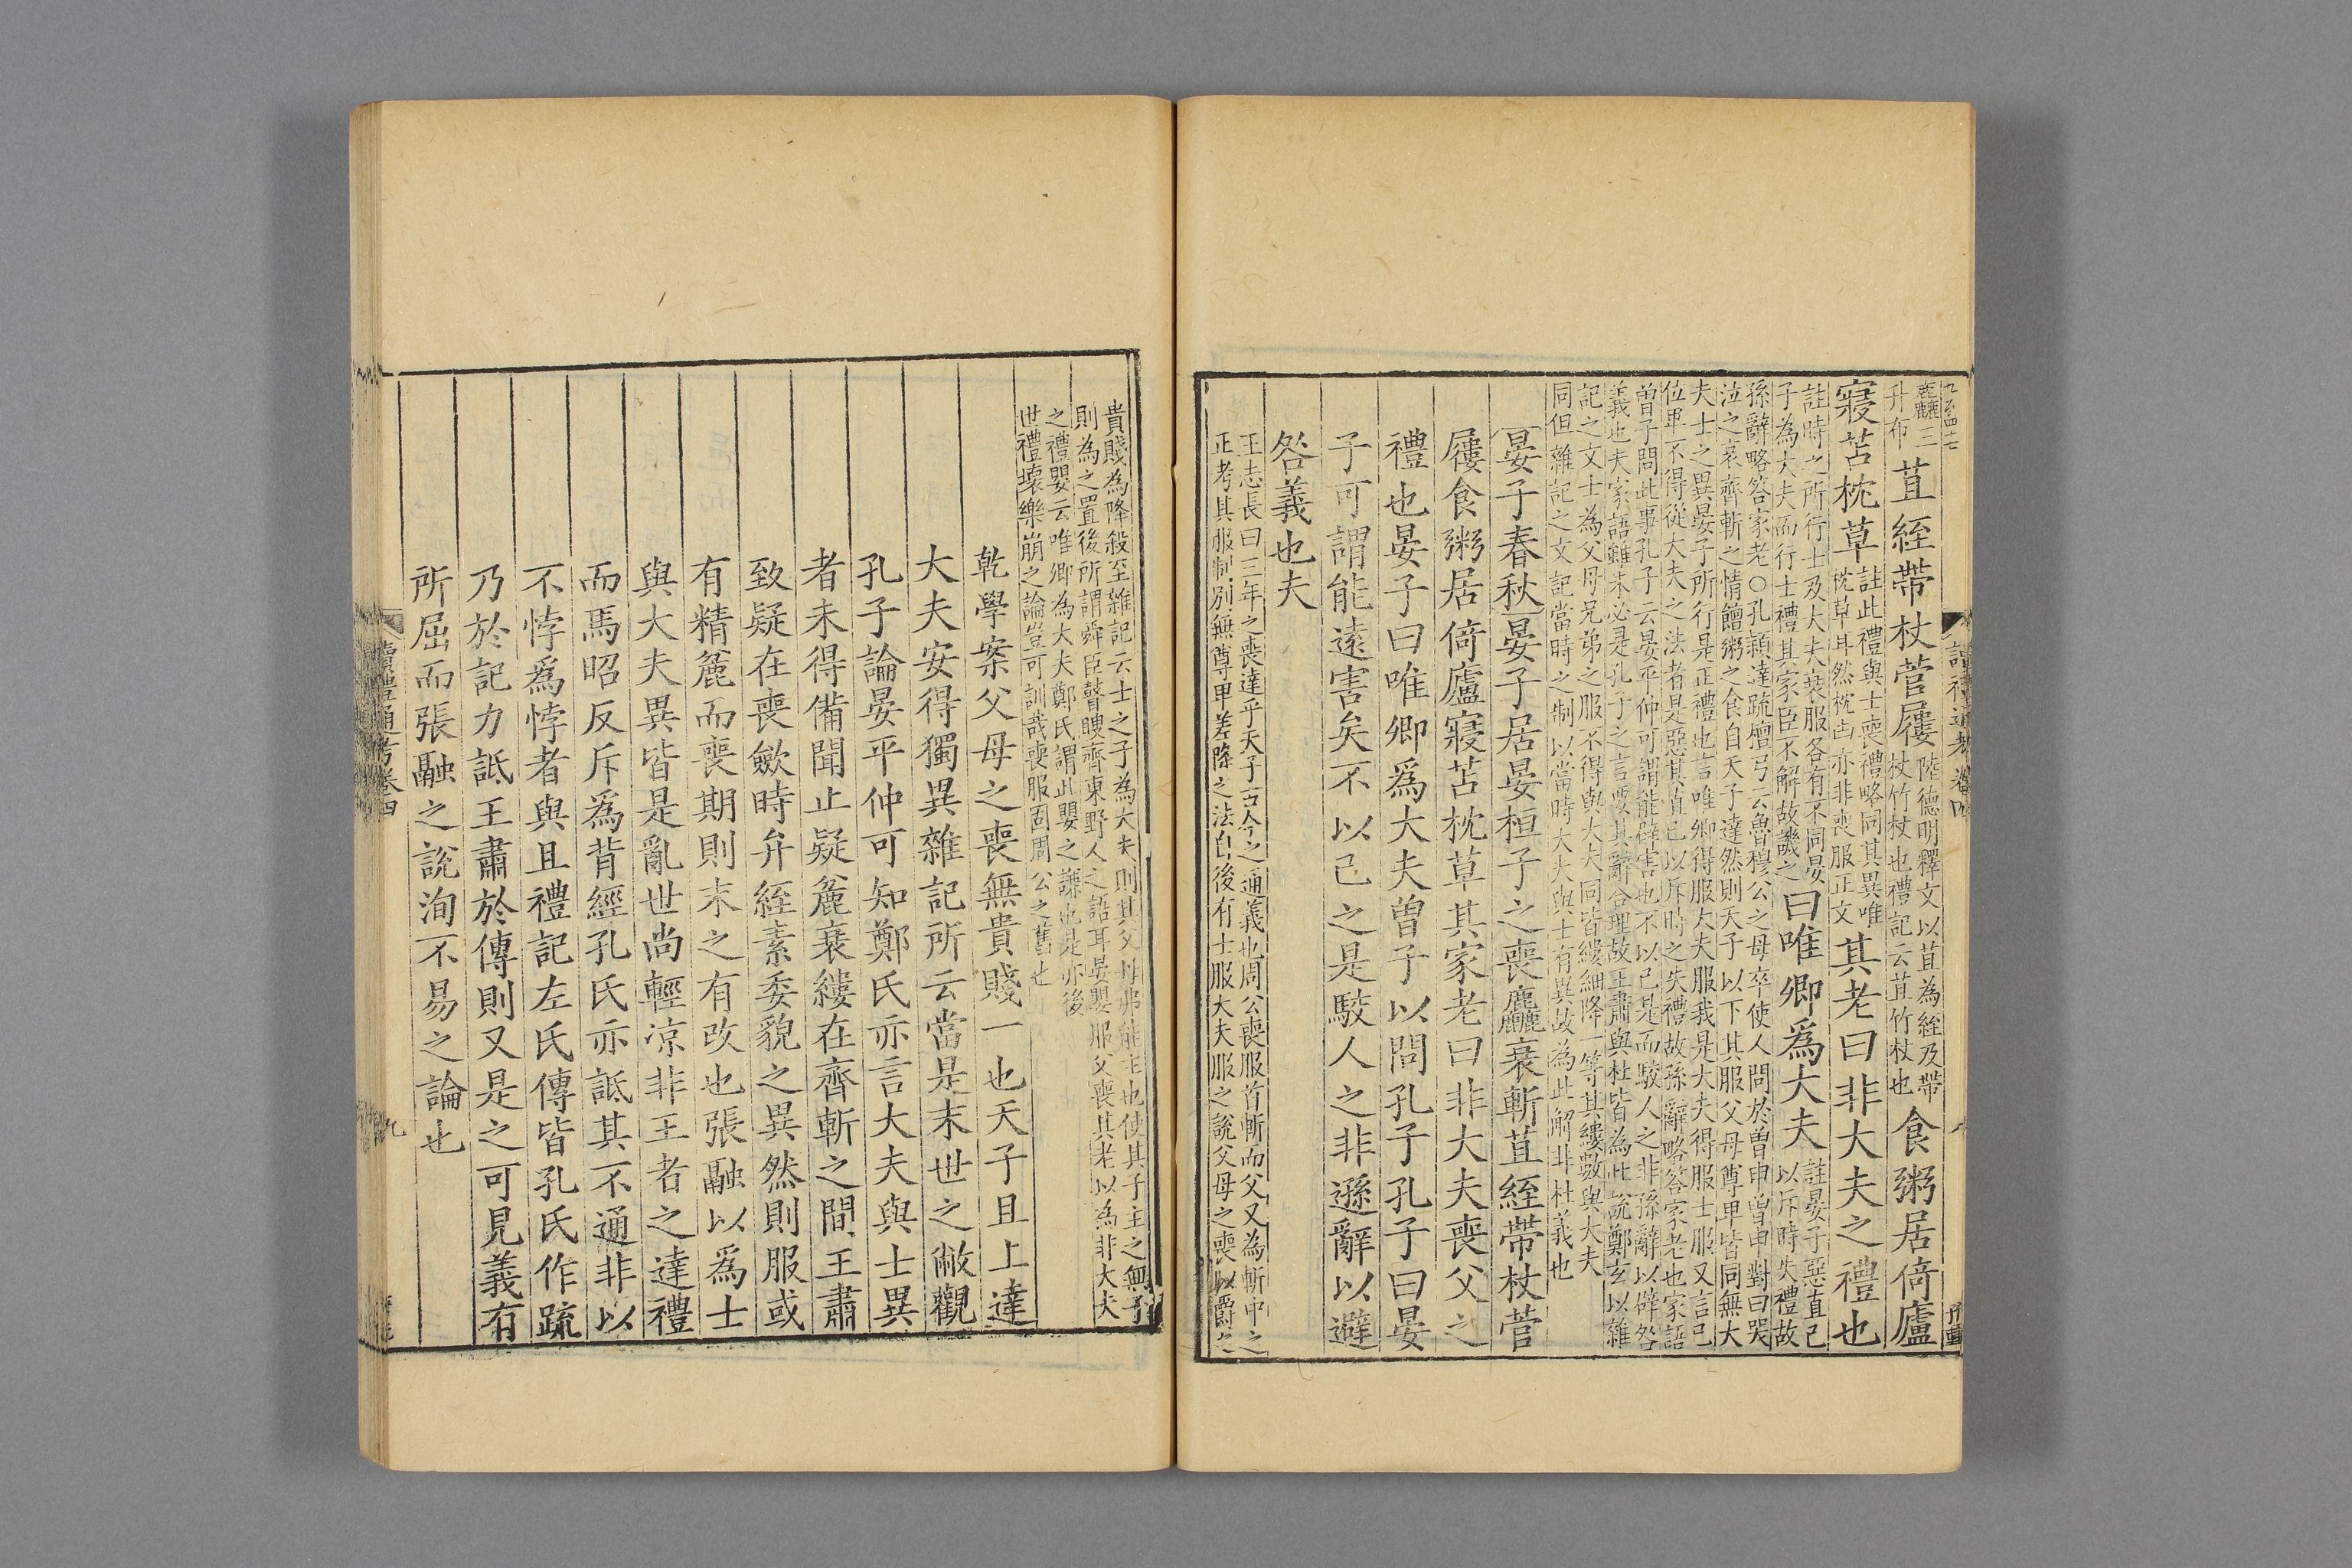 麤三
升布
苴絰帶杖菅屨
陸德明釋文以苴為絰及帶
杖竹杖也禮記云苴竹杖也
食粥居倚廬
寢苫枕草
註此禮與士喪禮略同其異唯
枕草耳然枕凷亦非喪服正文
其老曰非大夫之禮也
註時之所行士及大夫衰服各有不同晏
子為大夫而行士禮其家臣不解故譏之
曰唯卿爲大夫
註晏子惡直己
以斥時失禮故
孫辭略答家老○孔穎達疏檀弓云魯穆公之母卒使人問於曾申曾申對曰哭
泣之哀齊斬之情饘粥之食自天子達然則天子以下其服父母尊卑皆同無大
夫士之異晏子所行是正禮也言唯卿得服大夫服我是大夫得服士服又言己
位卑不得從大夫之法者是惡其直己以斥時之失禮故孫辭略答家老也家語
曾子問此事孔子云晏平仲可謂能辟害也不以己是而駮人之非孫辭以辟咎
義也夫家語雖未必是孔子之言要其辭合理故王肅與杜皆為此說鄭玄以雜
記之文士為父母兄弟之服不得與大夫同皆縷細降一等其縷數與大夫
同但雜記之文記當時之制以當時大夫與士有異故為此解非杜義也
晏子春秋晏子居晏桓子之喪麤衰斬苴絰帶杖菅
屨食粥居倚廬寢苫枕草其家老曰非大夫喪父之
禮也晏子曰唯卿爲大夫曾子以問孔子孔子曰晏
子可謂能遠害矣不以己之是駮人之非遜辭以避
咎義也夫
王志長曰三年之喪達乎天子古今之通義也周公喪服首斬而父又為斬中之
正考其服制別無尊卑差降之法自後有士服大夫服之說父母之喪以爵之
貴賤為降殺至雜記云士之子為大夫則其父母弗能主也使其子主之無子
則為之置後所謂舜臣瞽瞍齊東野人之語耳晏嬰服父喪其老以為非大夫
之禮嬰云唯卿為大夫鄭氏謂此嬰之謙也是亦後
世禮壞樂崩之論豈可訓哉喪服固周公之舊也
乾學案父母之喪無貴賤一也天子且上達
大夫安得獨異雜記所云當是末世之敝觀
孔子論晏平仲可知鄭氏亦言大夫與士異
者未得備聞止疑麄衰縷在齊斬之間王肅
致疑在喪歛時弁絰素委貌之異然則服或
有精麄而喪期則未之有改也張融以爲士
與大夫異皆是亂世尚輕凉非王者之達禮
而馬昭反斥爲背經孔氏亦詆其不通非以
不悖爲悖者與且禮記左氏傳皆孔氏作疏
乃於記力詆王肅於傳則又是之可見義有
所屈而張融之說洵不易之論也
讀禮通考卷四
九